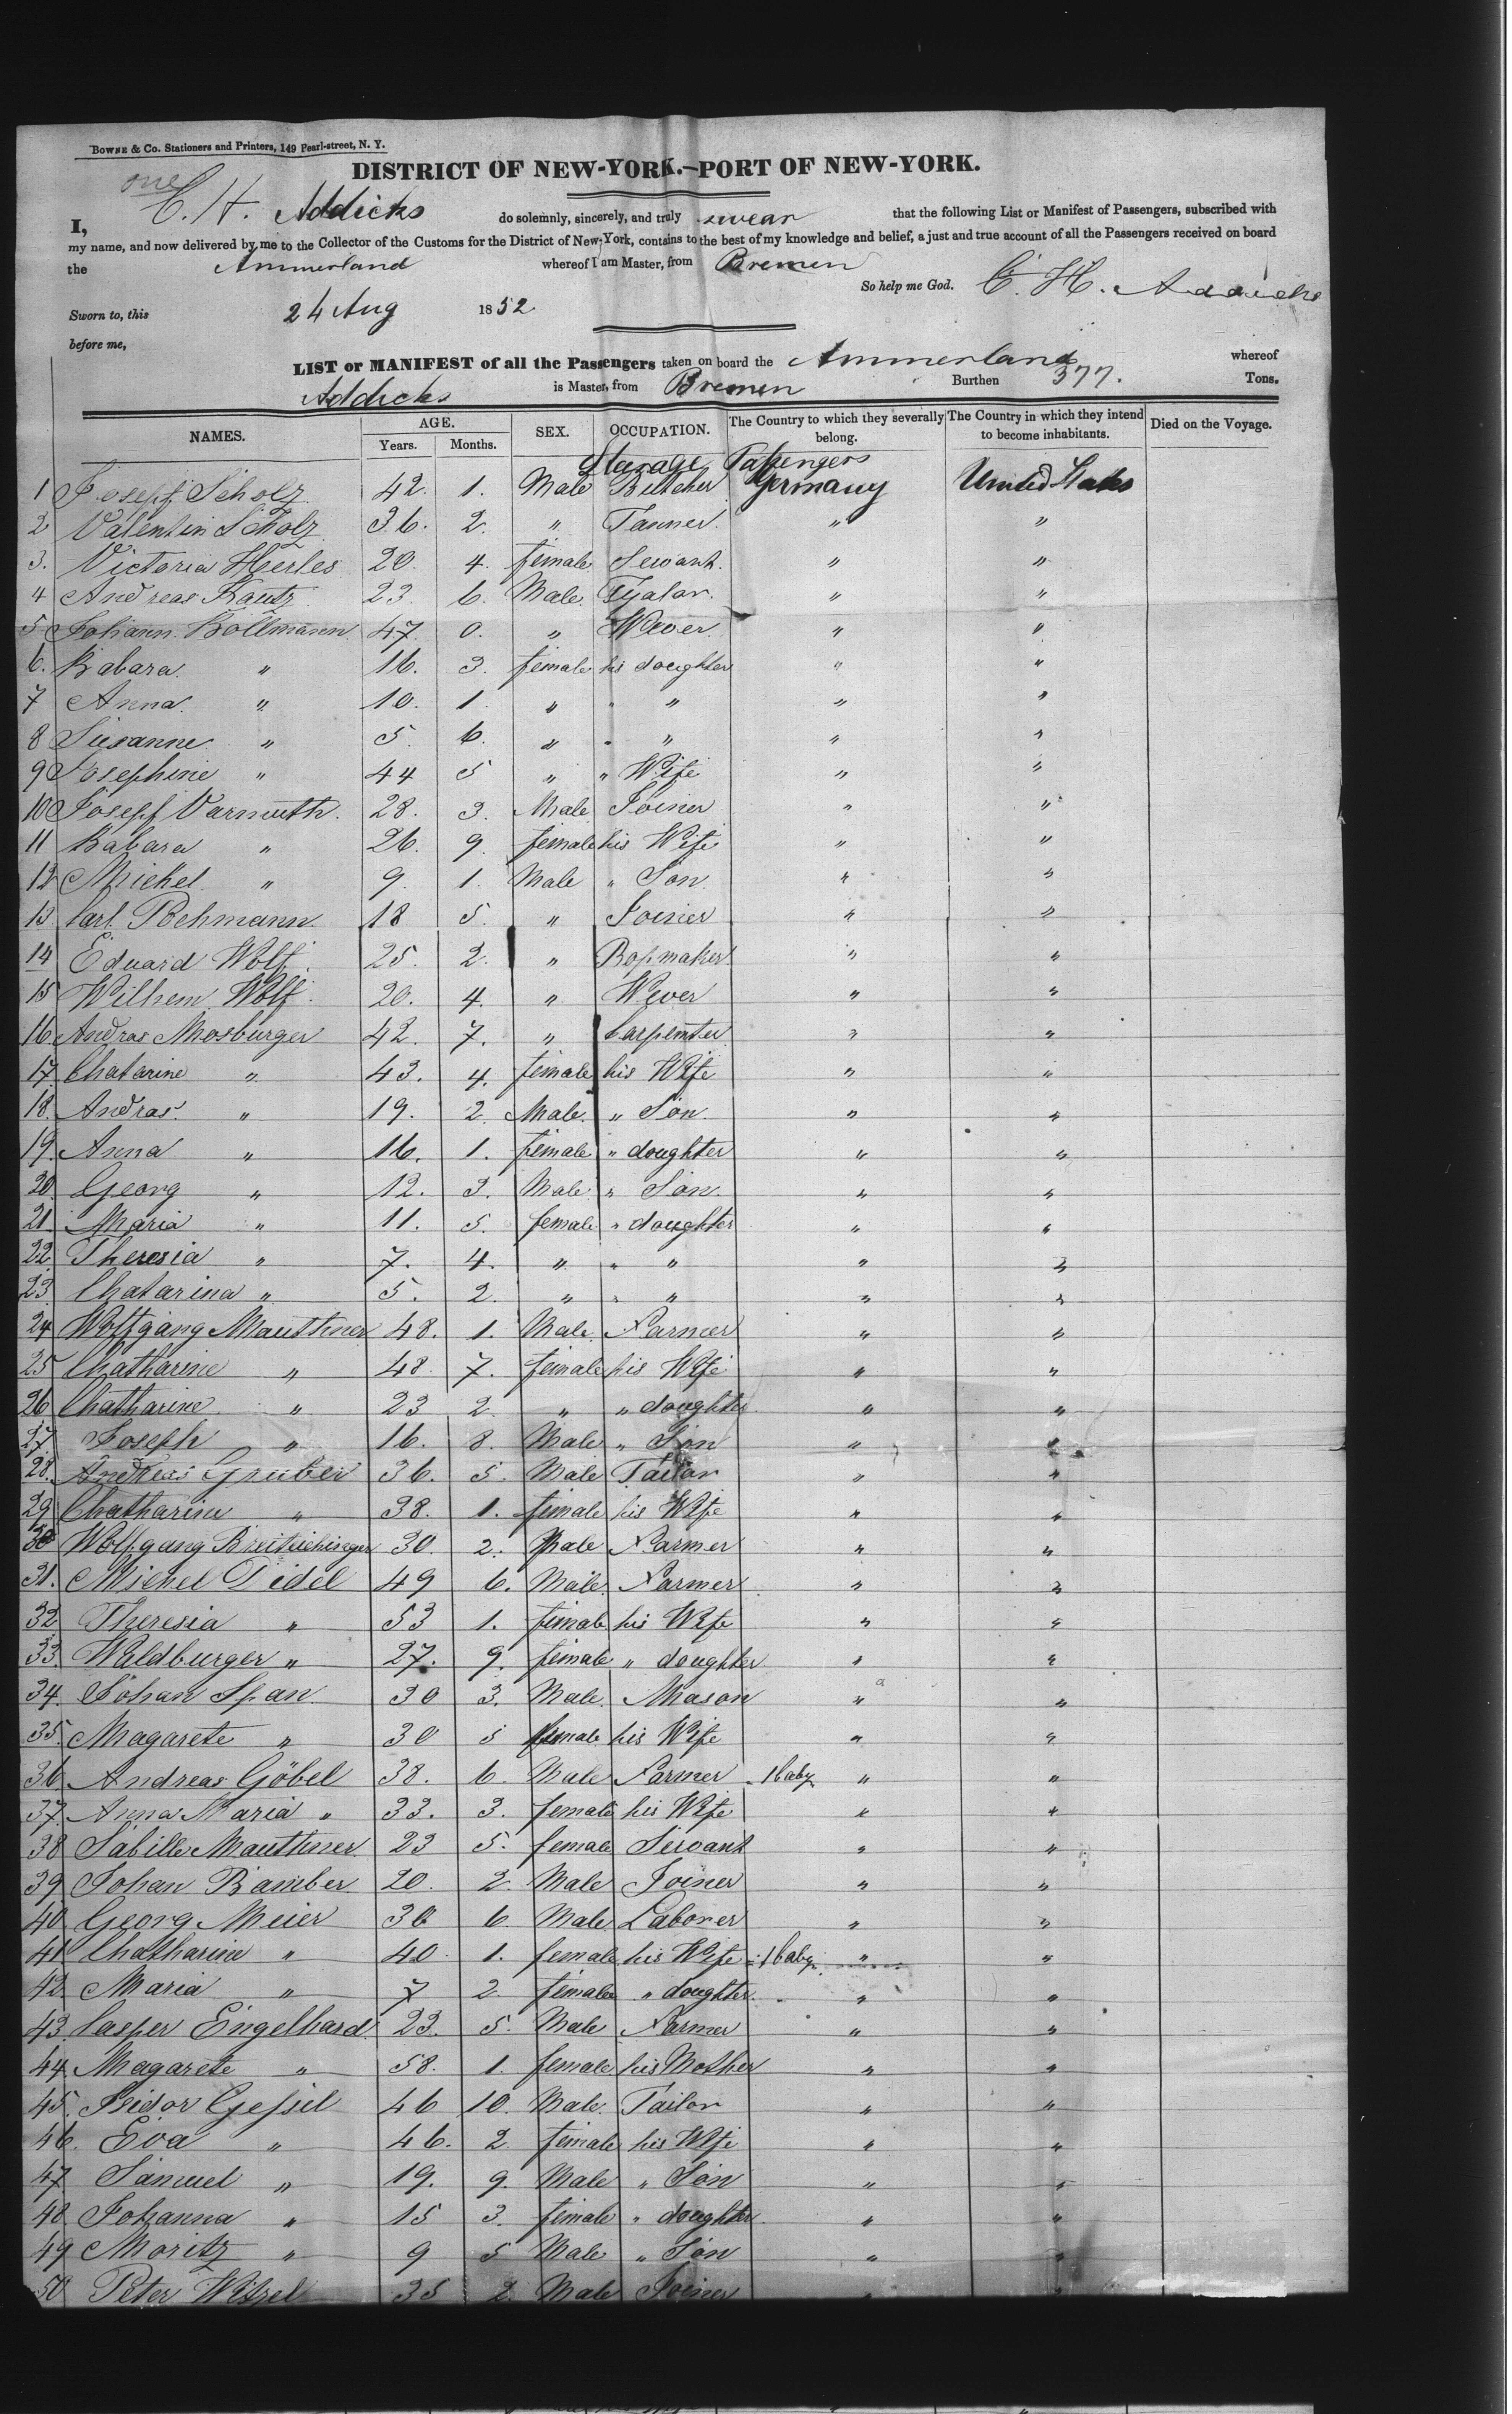 BOWNE & Co. Stationers and Printers, 149 Pearl-street, N. Y.
DISTRICT OF NEW-YORK.—PORT OF NEW-YORK.
one
I, C. H. Addicks do solemnly, sincerely, and truly swear that the following List or Manifest of Passengers, subscribed with
my name, and now delivered by me to the Collector of the Customs for the District of New-York, contains to the best of my knowledge and belief, a just and true account of all the Passengers received on board
the Ammerland whereof I am Master, from Bremen
So help me God. C. H. Addicks
Sworn to, this 24 Aug 1852
before me,
LIST or MANIFEST of all the Passengers taken on board the Ammerland whereof
Addicks is Master, from Bremen Burthen 377. Tons.
NAMES. AGE. Years. Months. SEX. OCCUPATION. The Country to which they severally belong. The Country in which they intend to become inhabitants. Died on the Voyage.
Starage Passengers
1 Josepf Scholz 42. 1. Male Butcher Germany United States
2 Valentin Scholz 36. 2. " Tanner. " "
3. Victoria Herles 20. 4. female Sewant. " "
4 Andreas Kautz 23. 6. Male. " "
5 Johann Bollmann 47. 0. " Wever. " "
6. Babara " 16. 3. female his doughter " "
7 Anna " 10. 1. " " " " "
8 Susanne " 5. 6. " " " " "
9 Josephine " 44 5 " " Wife " "
10 Josepf Varmuth. 28. 3. Male Joiner " "
11 Babara " 26. 9. female his Wife " "
12 Michel " 9. 1. Male " Son. " "
13 Carl Behmann. 18 5. " Joiner " "
14 Eduard Wolf. 25. 2. " Ropmaker " "
15 Wilhem Wolf. 20. 4. " Wever " "
16. Andras Mosburger 42. 7. " Carpenter " "
17. Chatarine " 43. 4. female his Wife " "
18. Andras " 19. 2. Male. " Son. " "
19. Anna " 16. 1. female " doughter " "
20 Georg " 12. 3. Male. " Son. " "
21. Maria " 11. 5. female " doughter " "
22. Theresia " 7. 4. " " " " "
23 Chatarina " 5. 2. " " " " "
24 Wolfgang Mauthner 48. 1. Male. Farmer " "
25 Chatharine " 48. 7. female his Wife " "
26 Chatharine " 23 2. " " doughter " "
27 Joseph " 16. 8. Male " Son " "
28. Andreas Gruber 36. 5. Male Tailor " "
29 Chatharine " 38. 1. female his Wife " "
30 Wolfgang 30. 2. Male Farmer " "
31. Michel Didel 49 6. Male. Farmer " "
32 Theresia " 53 1. female his Wife " "
33. Waldburger " 27. 9. female " doughter " "
34. Johan Span 30 3. Male. Mason " "
35. Magarete " 30 5 female his Wife " "
36 Andreas Göbel 38. 6. Male Farmer 1 baby " "
37. Anna Maria " 33. 3. female his Wife " "
38 Sabille Mauthner 23 5. female Servant " "
39 Johan Bamber 20. 2. Male Joiner " "
40 Georg Meier 36 6. Male Laborer " "
41 Chatharine " 40. 1. female his Wife 1 baby " "
42 Maria " 7 2. female " doughter " "
43. Casper Engelhard 23. 5. Male Farmer " "
44. Magarete " 58. 1. female his Mother " "
45. Isidor Gessel 46 10. Male. Tailor " "
46. Eva " 46. 2 female his Wife " "
47 Samuel " 19. 9. Male " Son " "
48 Johanna " 15 3. female " doughter " "
49 Moritz " 9 5 Male " Son " "
50 Peter Witzel 35 2. Male Joiner " "